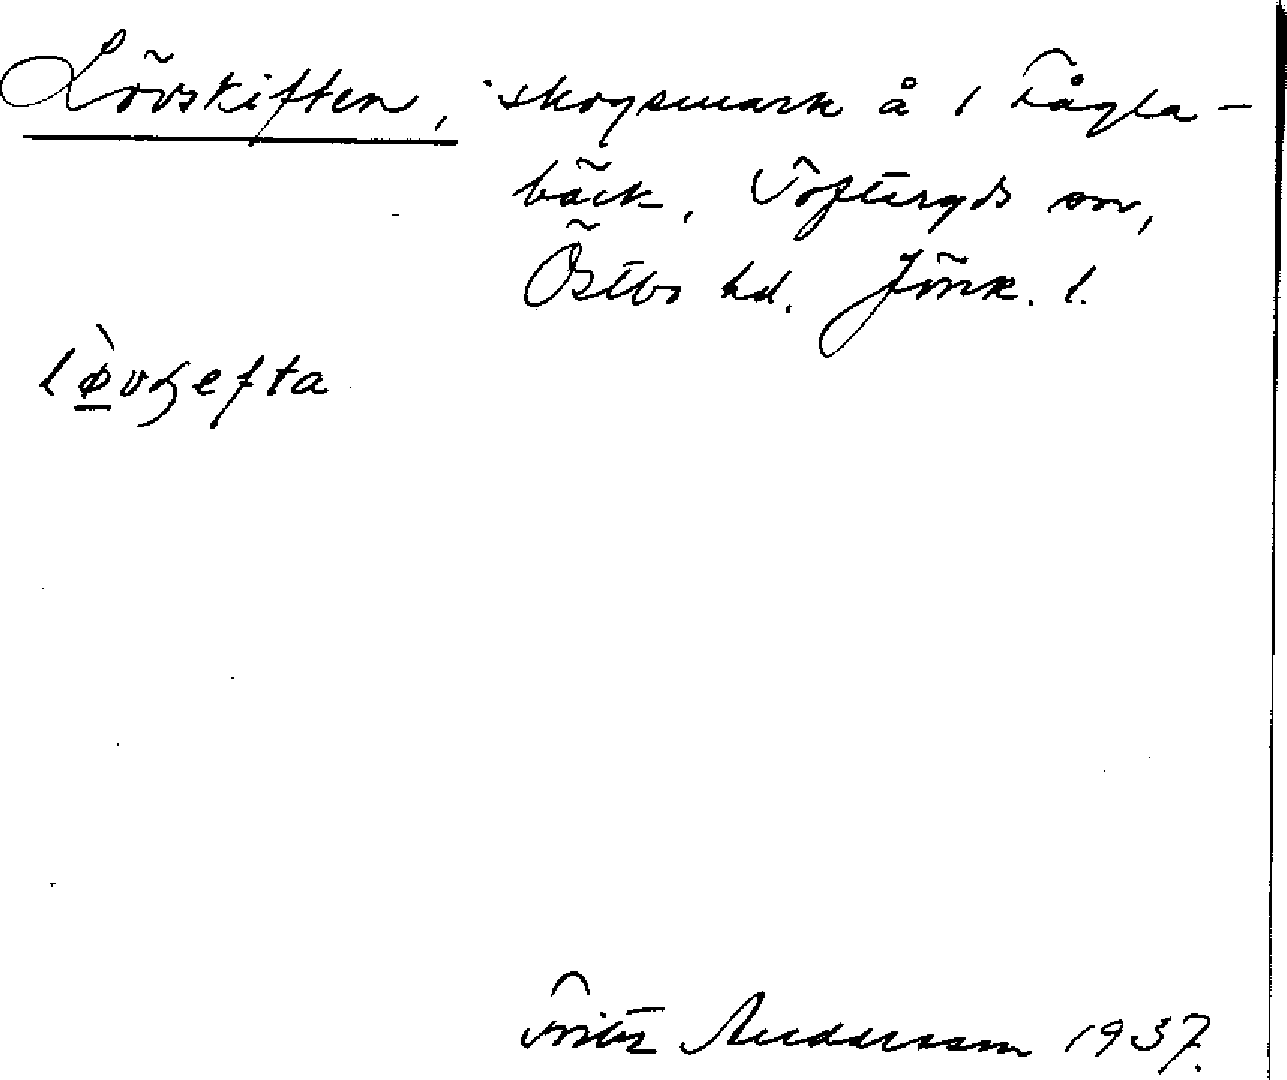 Lövskiften, skogsmark å 1 Fågla-
bäck, Tofteryds sn,
Östbo hd. Jönk. l.
lø̀vꜧefta
Fritz Andersson 1937.